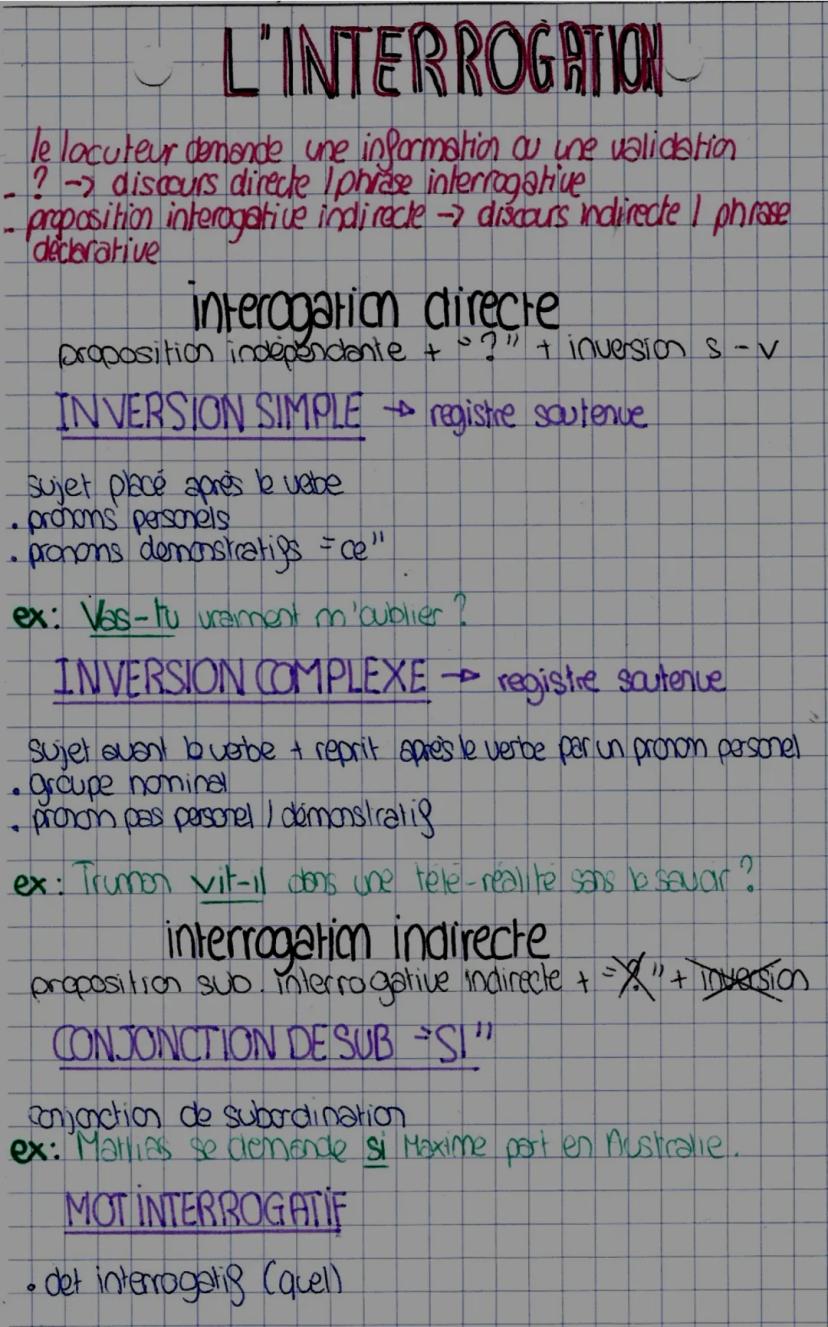 L'INTERROGATION
le locuteur demande une information ou une validation
- ? -> discours directe / phrase interrogative
- proposition interogative indirecte -> discours indirecte / phrase
déclarative
interogation directe
proposition indépendante + "?" + inversion s - v
INVERSION SIMPLE -> registre soutenue
sujet placé après le vebe
. pronoms personels
. pronoms demonstratifs "ce"
ex: Vas-tu vraiment m'oublier ?
INVERSION COMPLEXE -> registre soutenue
sujet avant le verbe + reprit après le verbe par un pronom personel
. groupe nominal
. pronom pas personel / démonstratif
ex: Truman vit-il dans une télé-réalité sans le savoir ?
interrogation indirecte
proposition sub. interrogative indirecte + "?" + inversion
CONJONCTION DE SUB "SI"
conjonction de subordination
ex: Mathias se demande si Maxime part en Australie.
MOT INTERROGATIF
. det interrogatif (quel)